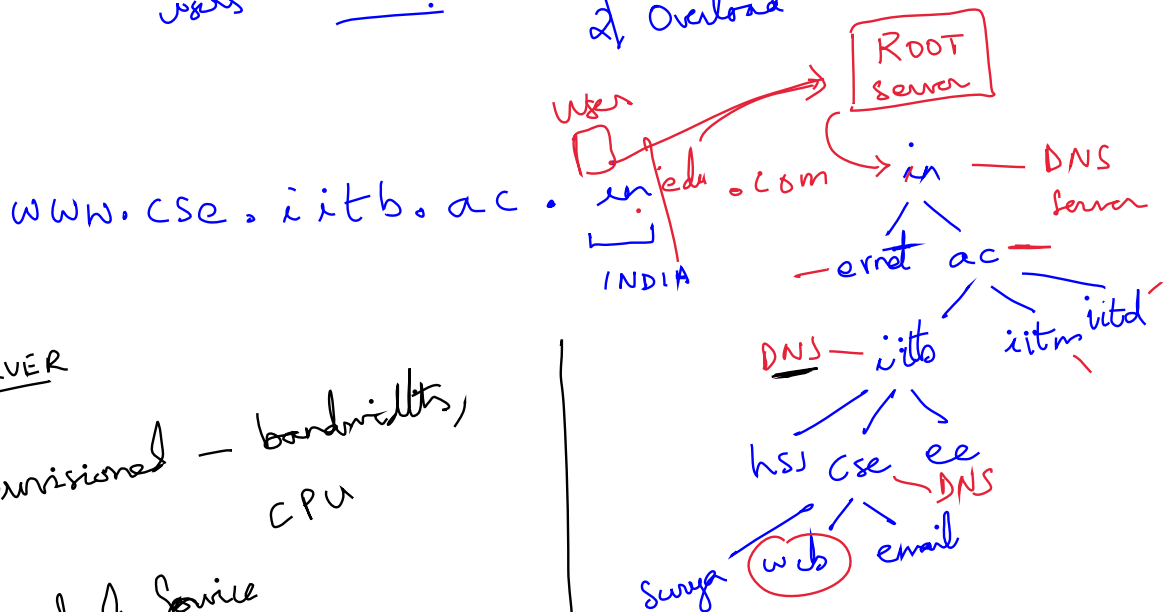 users
2) Overload
ROOT
server
User
www.cse.iitb.ac.in edu .com
INDIA
in
DNS
Server
ernet ac
DNS iitb iitm iitd
hss cse ee
DNS
surya web email
VER
bandwidths,
CPU
Service